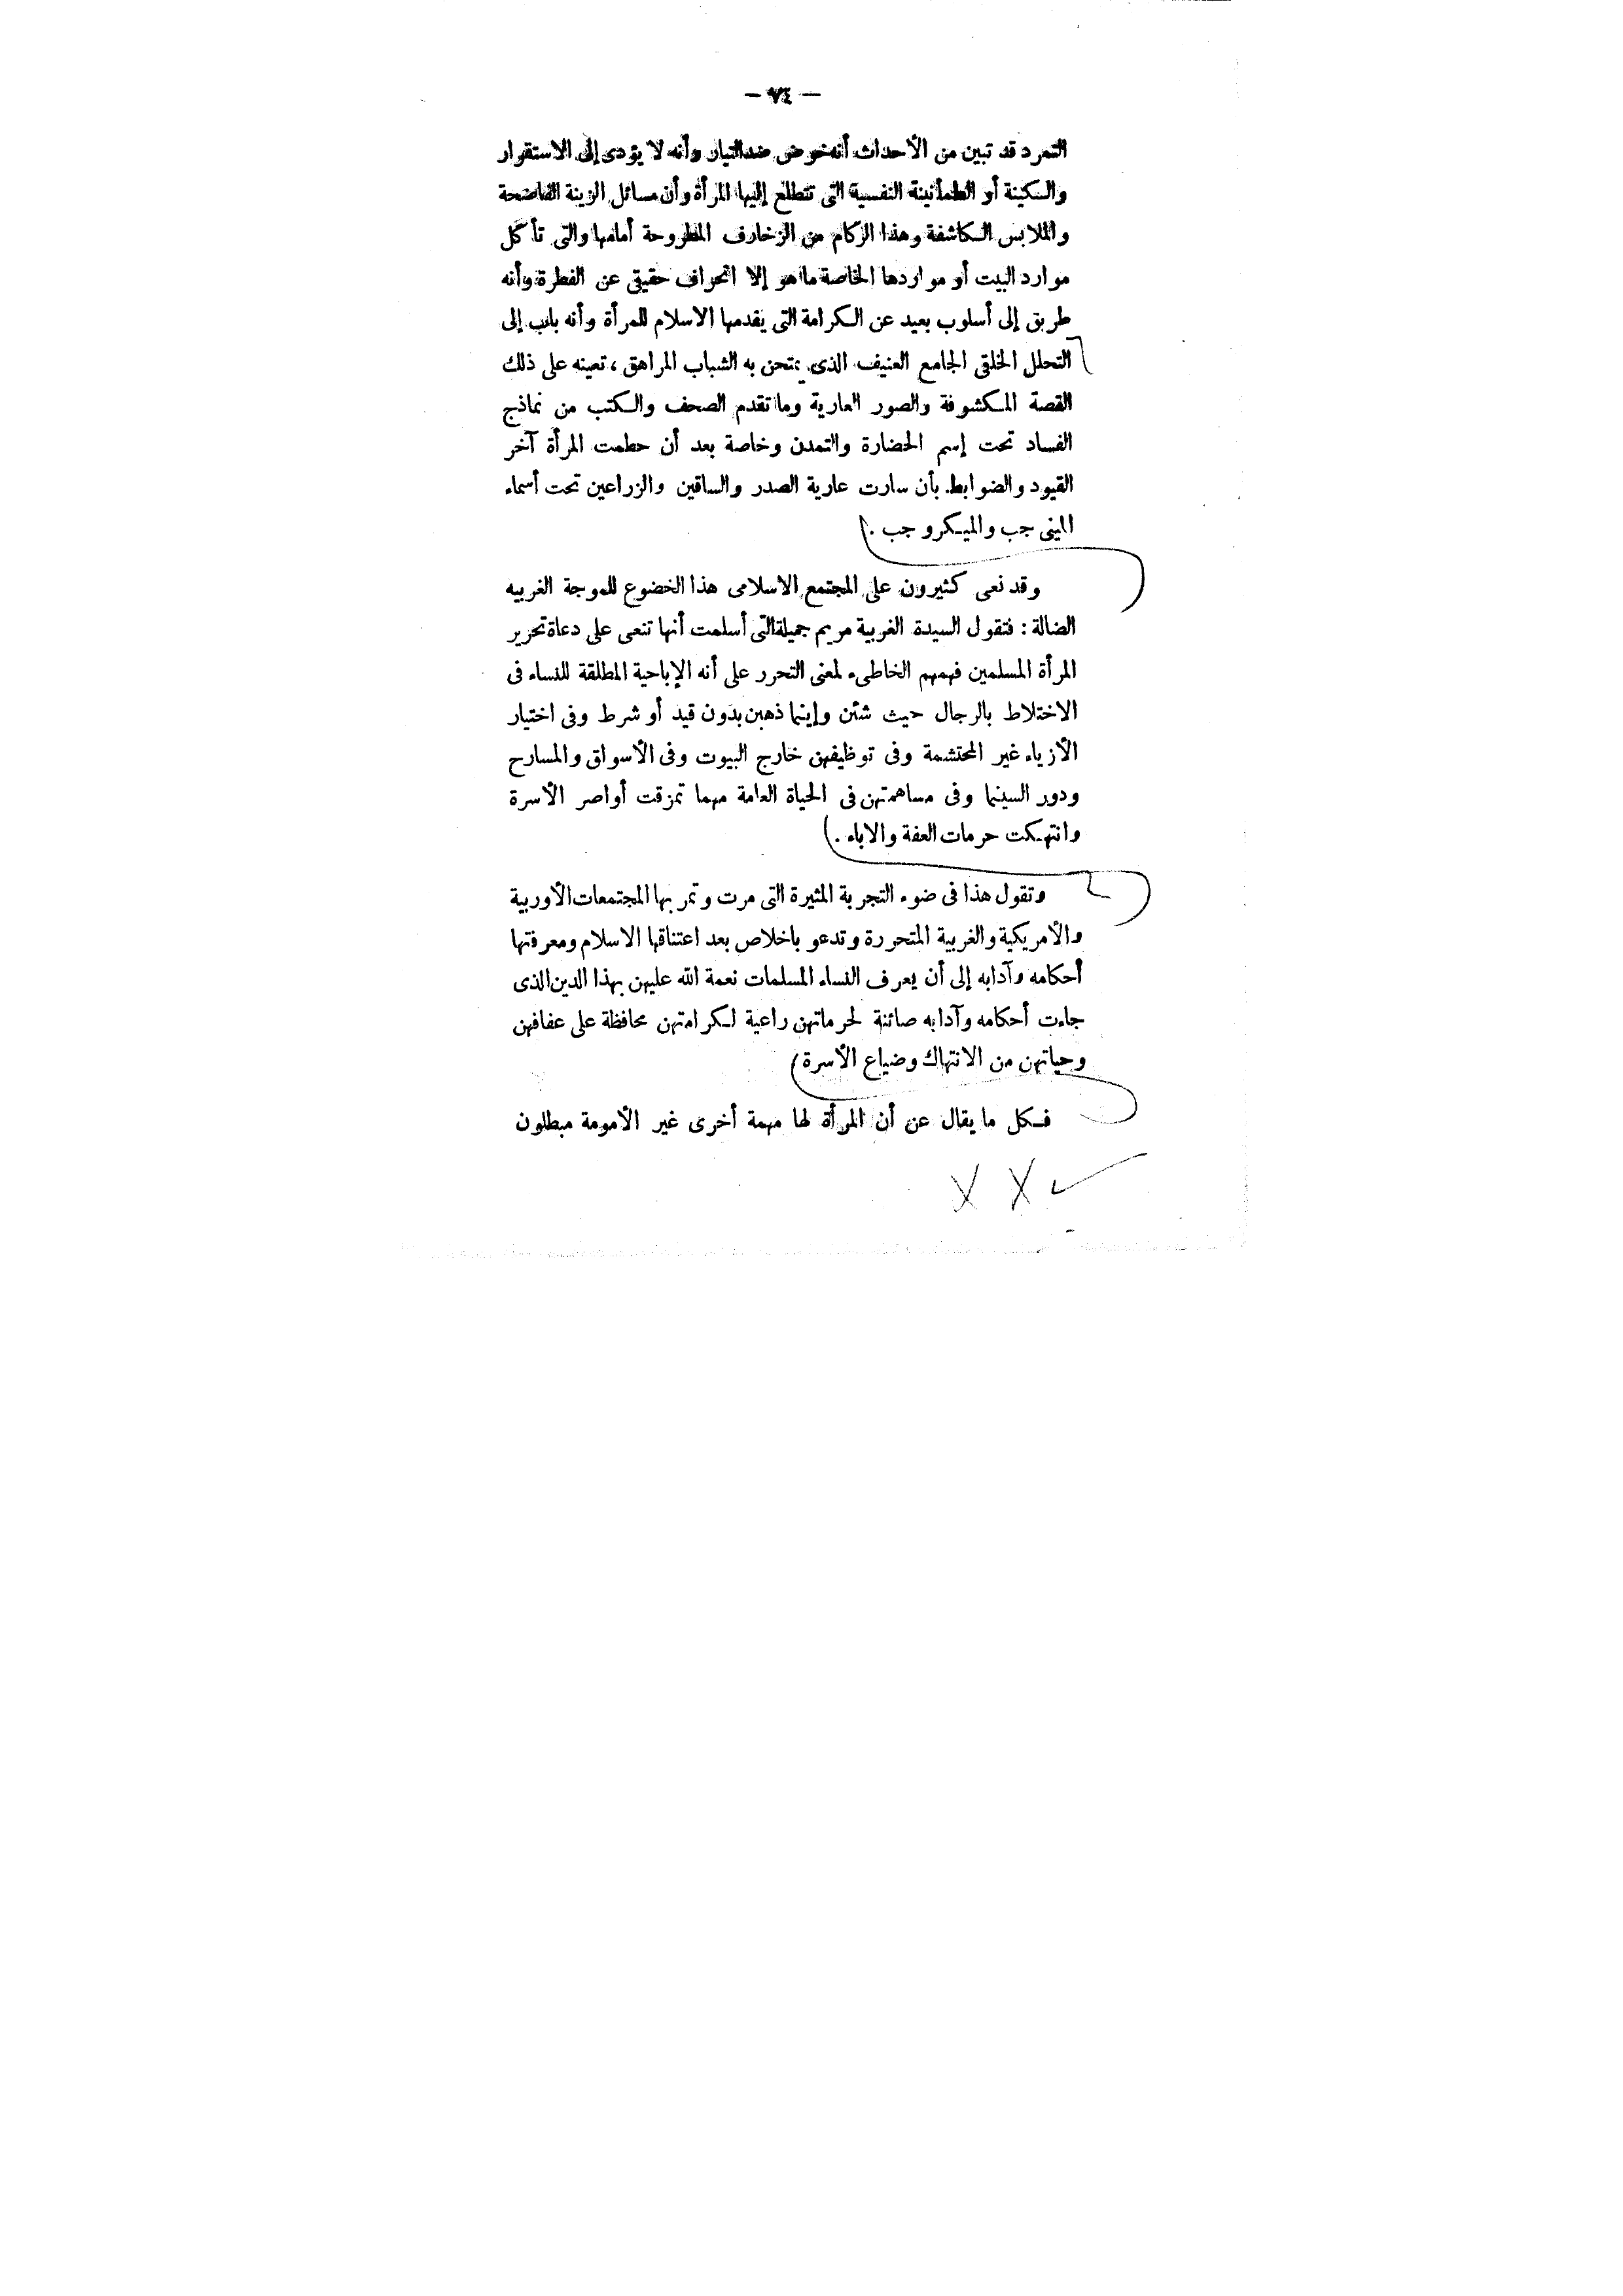 — ٧٤ —
التمرد قد تبين من الأحداث أنه خوض ضد التيار وأنه لا يؤدى إلى الاستقرار
والسكينة أو الطمأنينة النفسية التى تتطلع إليها المرأة وأن مسائل الزينة الفاضحة
والملابس الكاشفة وهذا الركام من الزخارف المطروحة أمامها والتى تأكل
موارد البيت أو مواردها الخاصة ما هو إلا انحراف حقيقى عن الفطرة وأنه
طريق إلى أسلوب بعيد عن الكرامة التى يقدمها الاسلام للمرأة وأنه باب إلى
التحلل الخلقى الجامع العنيف الذى يمتحن به الشباب المراهق ، تعينه على ذلك
القصة المكشوفة والصور العارية وما تقدم الصحف والكتب من نماذج
الفساد تحت إسم الحضارة والتمدن وخاصة بعد أن حطمت المرأة آخر
القيود والضوابط بأن سارت عارية الصدر والساقين والزراعين تحت أسماء
المينى جب والميكرو جب .
وقد نعى كثيرون على المجتمع الاسلامى هذا الخضوع للموجة الغربيه
الضالة : فتقول السيدة الغربية مريم جميلة التى أسلمت أنها تنعى على دعاة تحرير
المرأة المسلمين فهمهم الخاطىء لمعنى التحرر على أنه الإباحية المطلقة للنساء فى
الاختلاط بالرجال حيث شئن وإينما ذهبن بدون قيد أو شرط وفى اختيار
الأزياء غير المحتشمة وفى توظيفهن خارج البيوت وفى الأسواق والمسارح
ودور السينما وفى مساهمتهن فى الحياة العامة مهما تمزقت أواصر الأسرة
وانتهكت حرمات العفة والاباء .
وتقول هذا فى ضوء التجربة المثيرة التى مرت وتمر بها المجتمعات الأوربية
والأمريكية والغربية المتحررة وتدعو باخلاص بعد اعتناقها الاسلام ومعرفتها
أحكامه وآدابه إلى أن يعرف النساء المسلمات نعمة الله عليهن بهذا الدين الذى
جاءت أحكامه وآدابه صائنة لحرماتهن راعية لكرامتهن محافظة على عفافهن
وحياتهن من الانتهاك وضياع الأسرة
فكل ما يقال عن أن المرأة لها مهمة أخرى غير الأمومة مبطلون